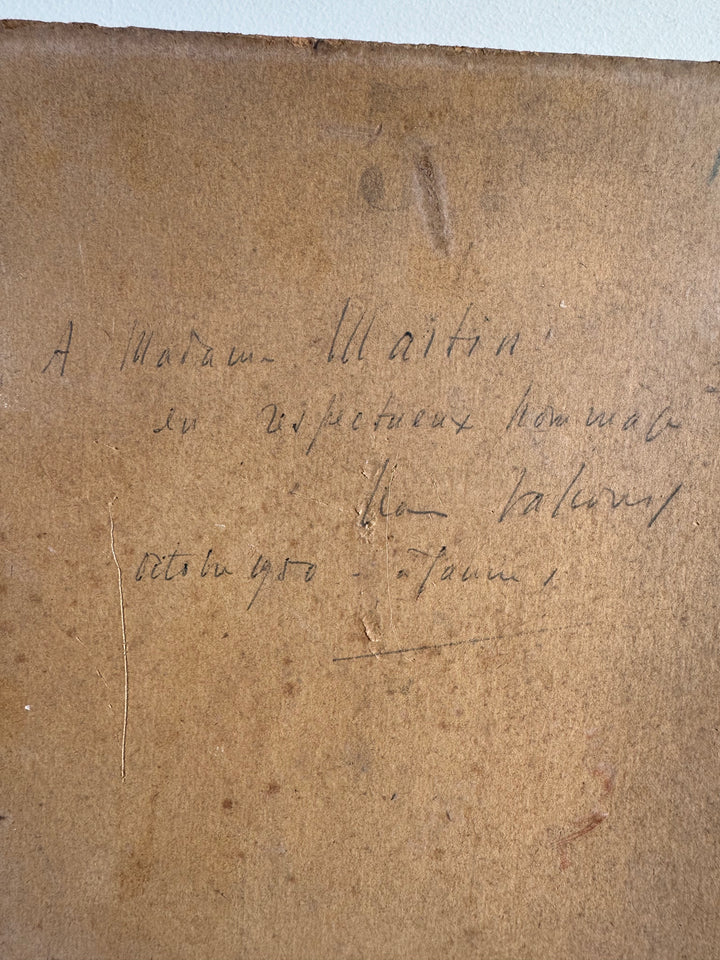 A Madame Martin
en respectueux hommage
Octobre 1950 - à